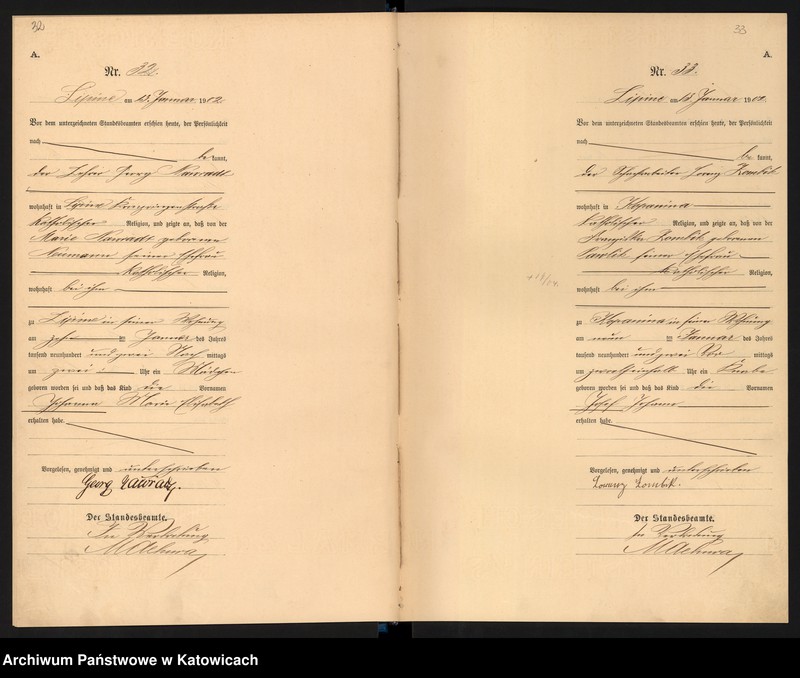 32
A.
Nr. 32.
Lipine am 13. Januar 1902.
Vor dem unterzeichneten Standesbeamten erschien heute, der Persönlichkeit
nach
be kannt,
der Lehrer Georg Nawradt
wohnhaft in Lipine
katholischer Religion, und zeigte an, daß von der
Marie Nawradt geborenen
Neumann seiner Ehefrau
katholischer Religion,
wohnhaft bei ihm
zu Lipine in seiner Wohnung
am zehn ten Januar des Jahres
tausend neunhundert und zwei Nach mittags
um zwei Uhr ein Mädchen
geboren worden sei und daß das Kind die Vornamen
Johanna Marie Elisabeth
erhalten habe.
Vorgelesen, genehmigt und unterschrieben
Georg
Der Standesbeamte.
In Vertretung
33
A.
Nr. 33.
Lipine am 13. Januar 1902.
Vor dem unterzeichneten Standesbeamten erschien heute, der Persönlichkeit
nach
be kannt,
der Lorenz Zombik
wohnhaft in Kopanina
katholischer Religion, und zeigte an, daß von der
Franziska Zombik geborenen
Pawlik seiner Ehefrau
katholischer Religion,
wohnhaft bei ihm
zu Kopanina in seiner Wohnung
am neun ten Januar des Jahres
tausend neunhundert und zwei Vor mittags
um zwölfeinhalb Uhr ein Knabe
geboren worden sei und daß das Kind die Vornamen
Josef Johann
erhalten habe.
Vorgelesen, genehmigt und unterschrieben
Lorenz Zombik.
Der Standesbeamte.
In Vertretung
Archiwum Państwowe w Katowicach